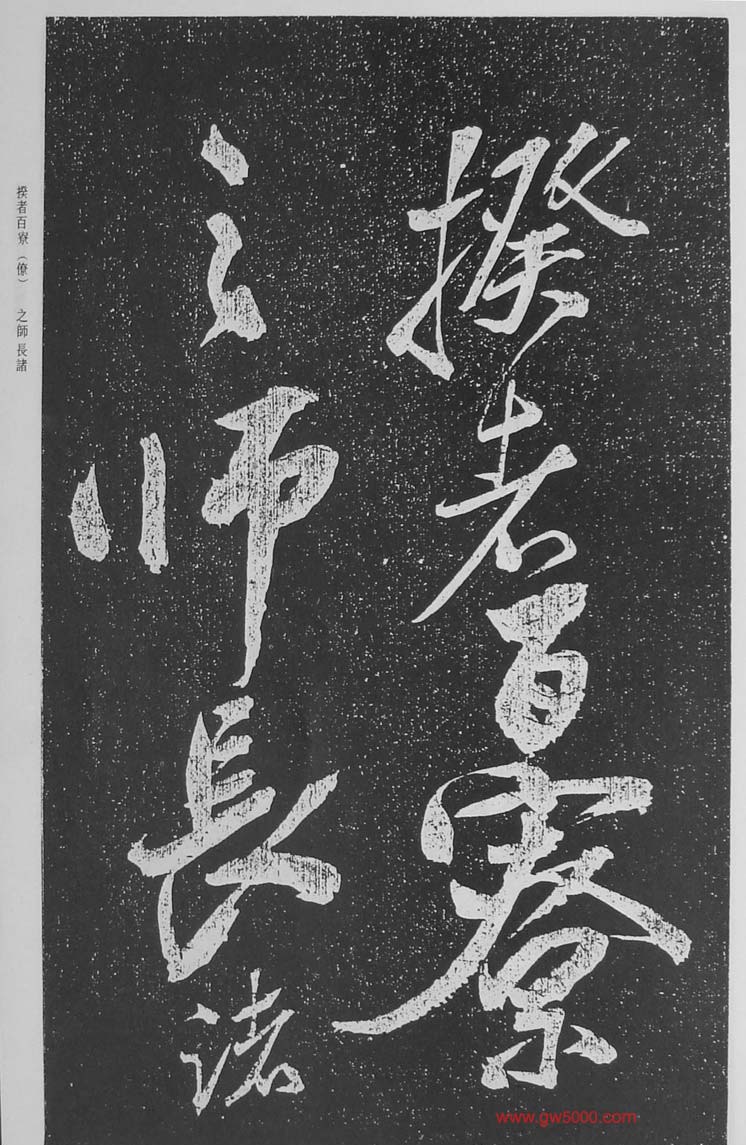 揆者百寮
之師長諸
揆者百寮（僚） 之師長諸
www.gw5000.com